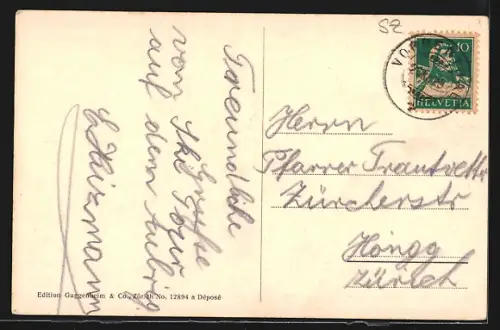 SZ
10
HELVETIA
Freundliche
Grüsse
von Ski Tour
auf dem Aubrig
Herrn
Pfarrer Trautvetter
Zürcherstr
Höngg
Zürich
Edition Guggenheim & Co., Zürich No. 12894 a Déposé